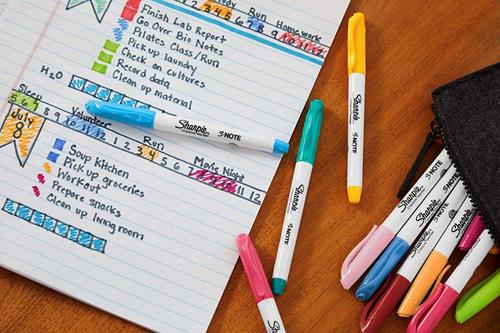 Run Homework
Finish Lab Report
Go Over Bio Notes
Pilates Class/Run
Pick up laundry
Check on cultures
Record data
Clean up material
H2O
Sleep Volunteer Run Movie Night
5 6 7 8 9 10 11 12 1 2 3 4 5 6 7
11 12
July
8
Soup Kitchen
Pick up groceries
Workout
Prepare snacks
Clean up living room
Sharpie S·NOTE
Sharpie S·NOTE
Sharpie S·NOTE
Sharpie S·NOTE
Sharpie S·NOTE
Sharpie S·NOTE
Sharpie
Sharpie
Sharpie